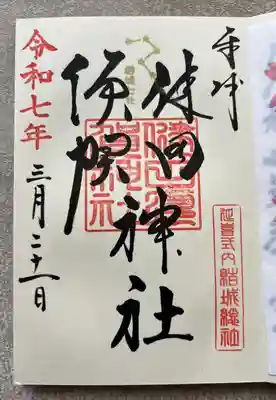 奉拝
延喜式内 結城總社
健田神社
須賀
令和七年
三月二十一日